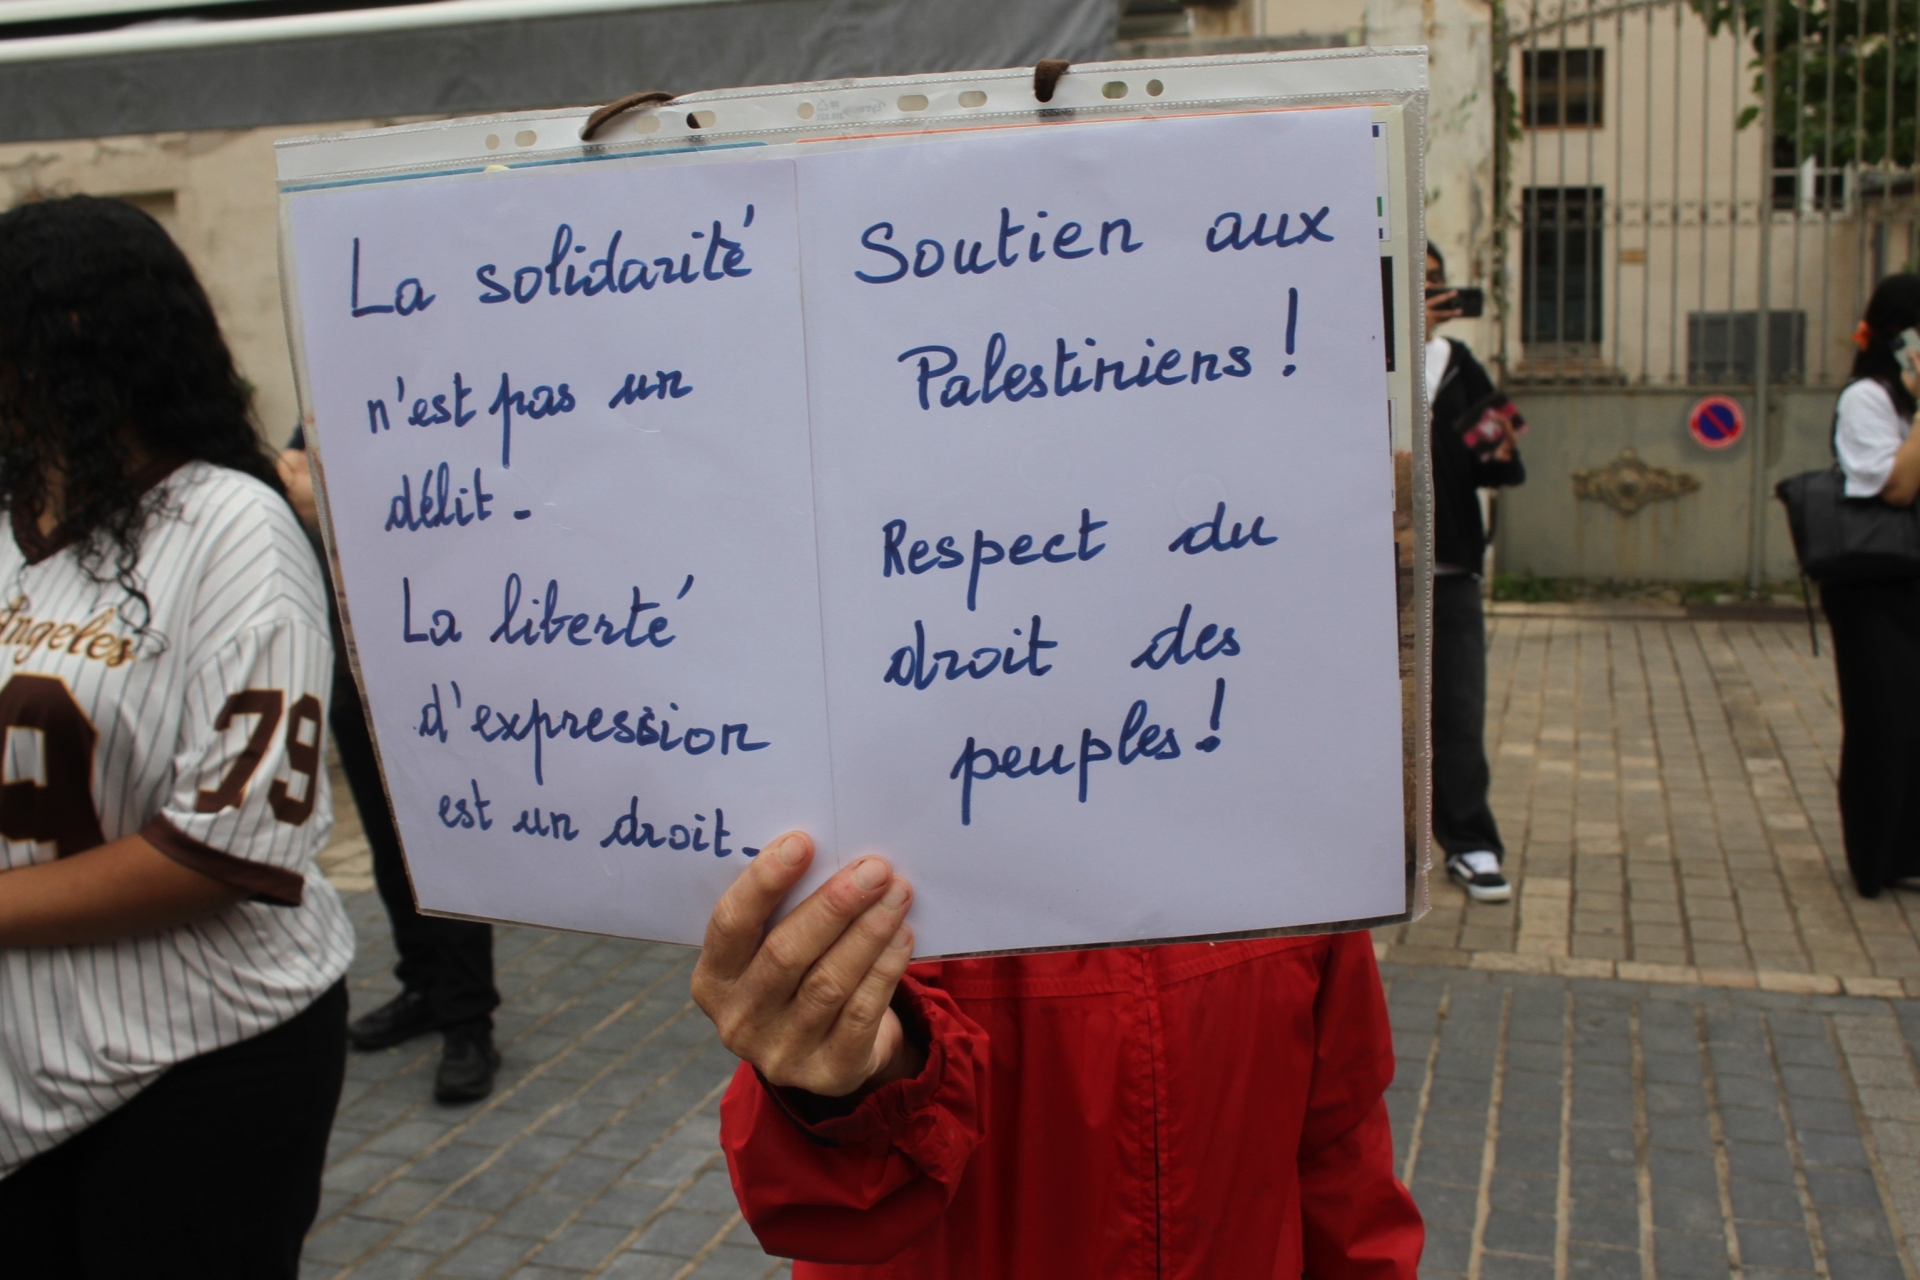 La solidarité
n'est pas un
délit.
La liberté
d'expression
est un droit.
Soutien aux
Palestiniens !
Respect du
droit des
peuples !
Angeles
79